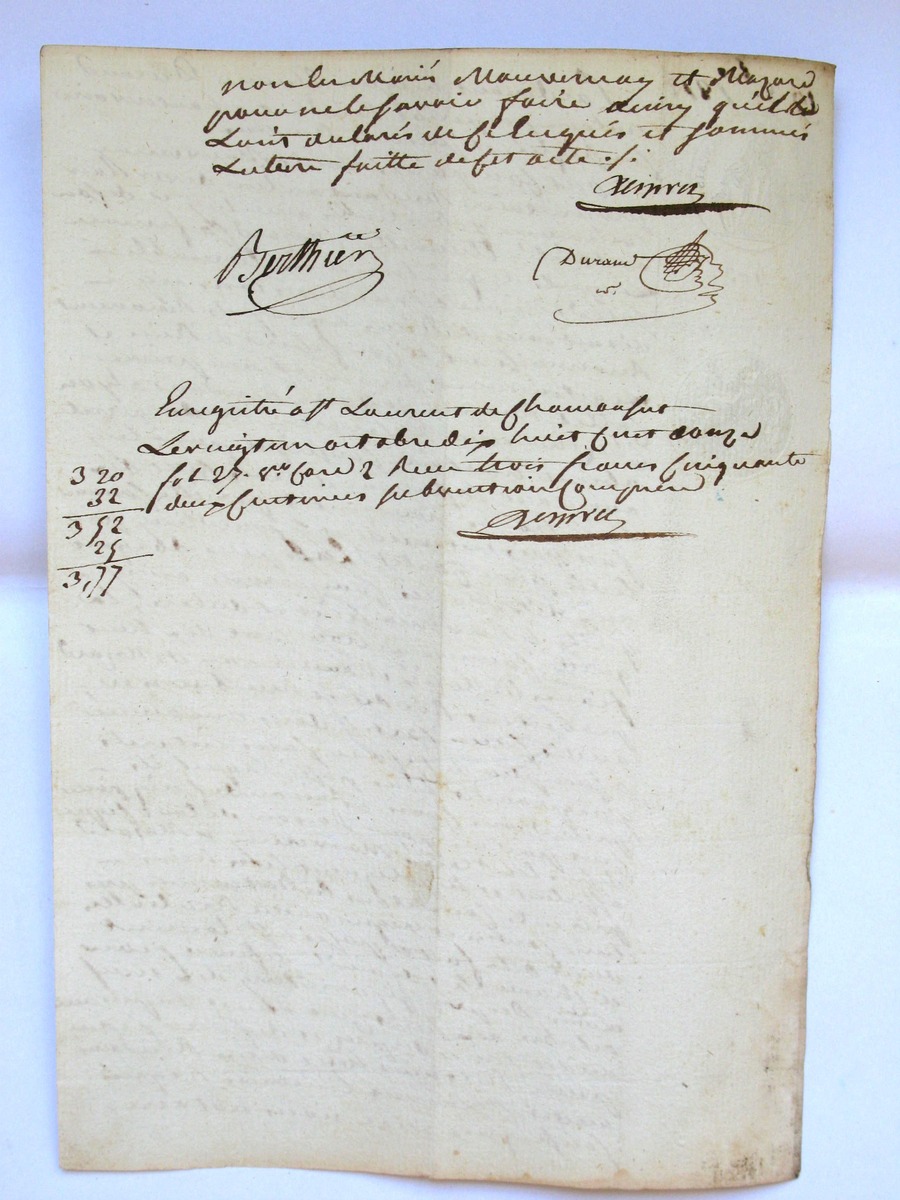 non les Mariés Mauvernay et Mazard
pour ne le savoir faire ainsy qu'ils
l'ont declarés de ce Requis et sommés
Lecture faitte de cet acte ./.
Berthier
Durand
Enregistré a St Laurent de Chamousset
Le vingt un octobre dix huit cent douze
fol 27. vo Case 2 Recu trois francs Cinquante
deux Centimes subvention Comprise
3 20
32
3 52
25
3,77